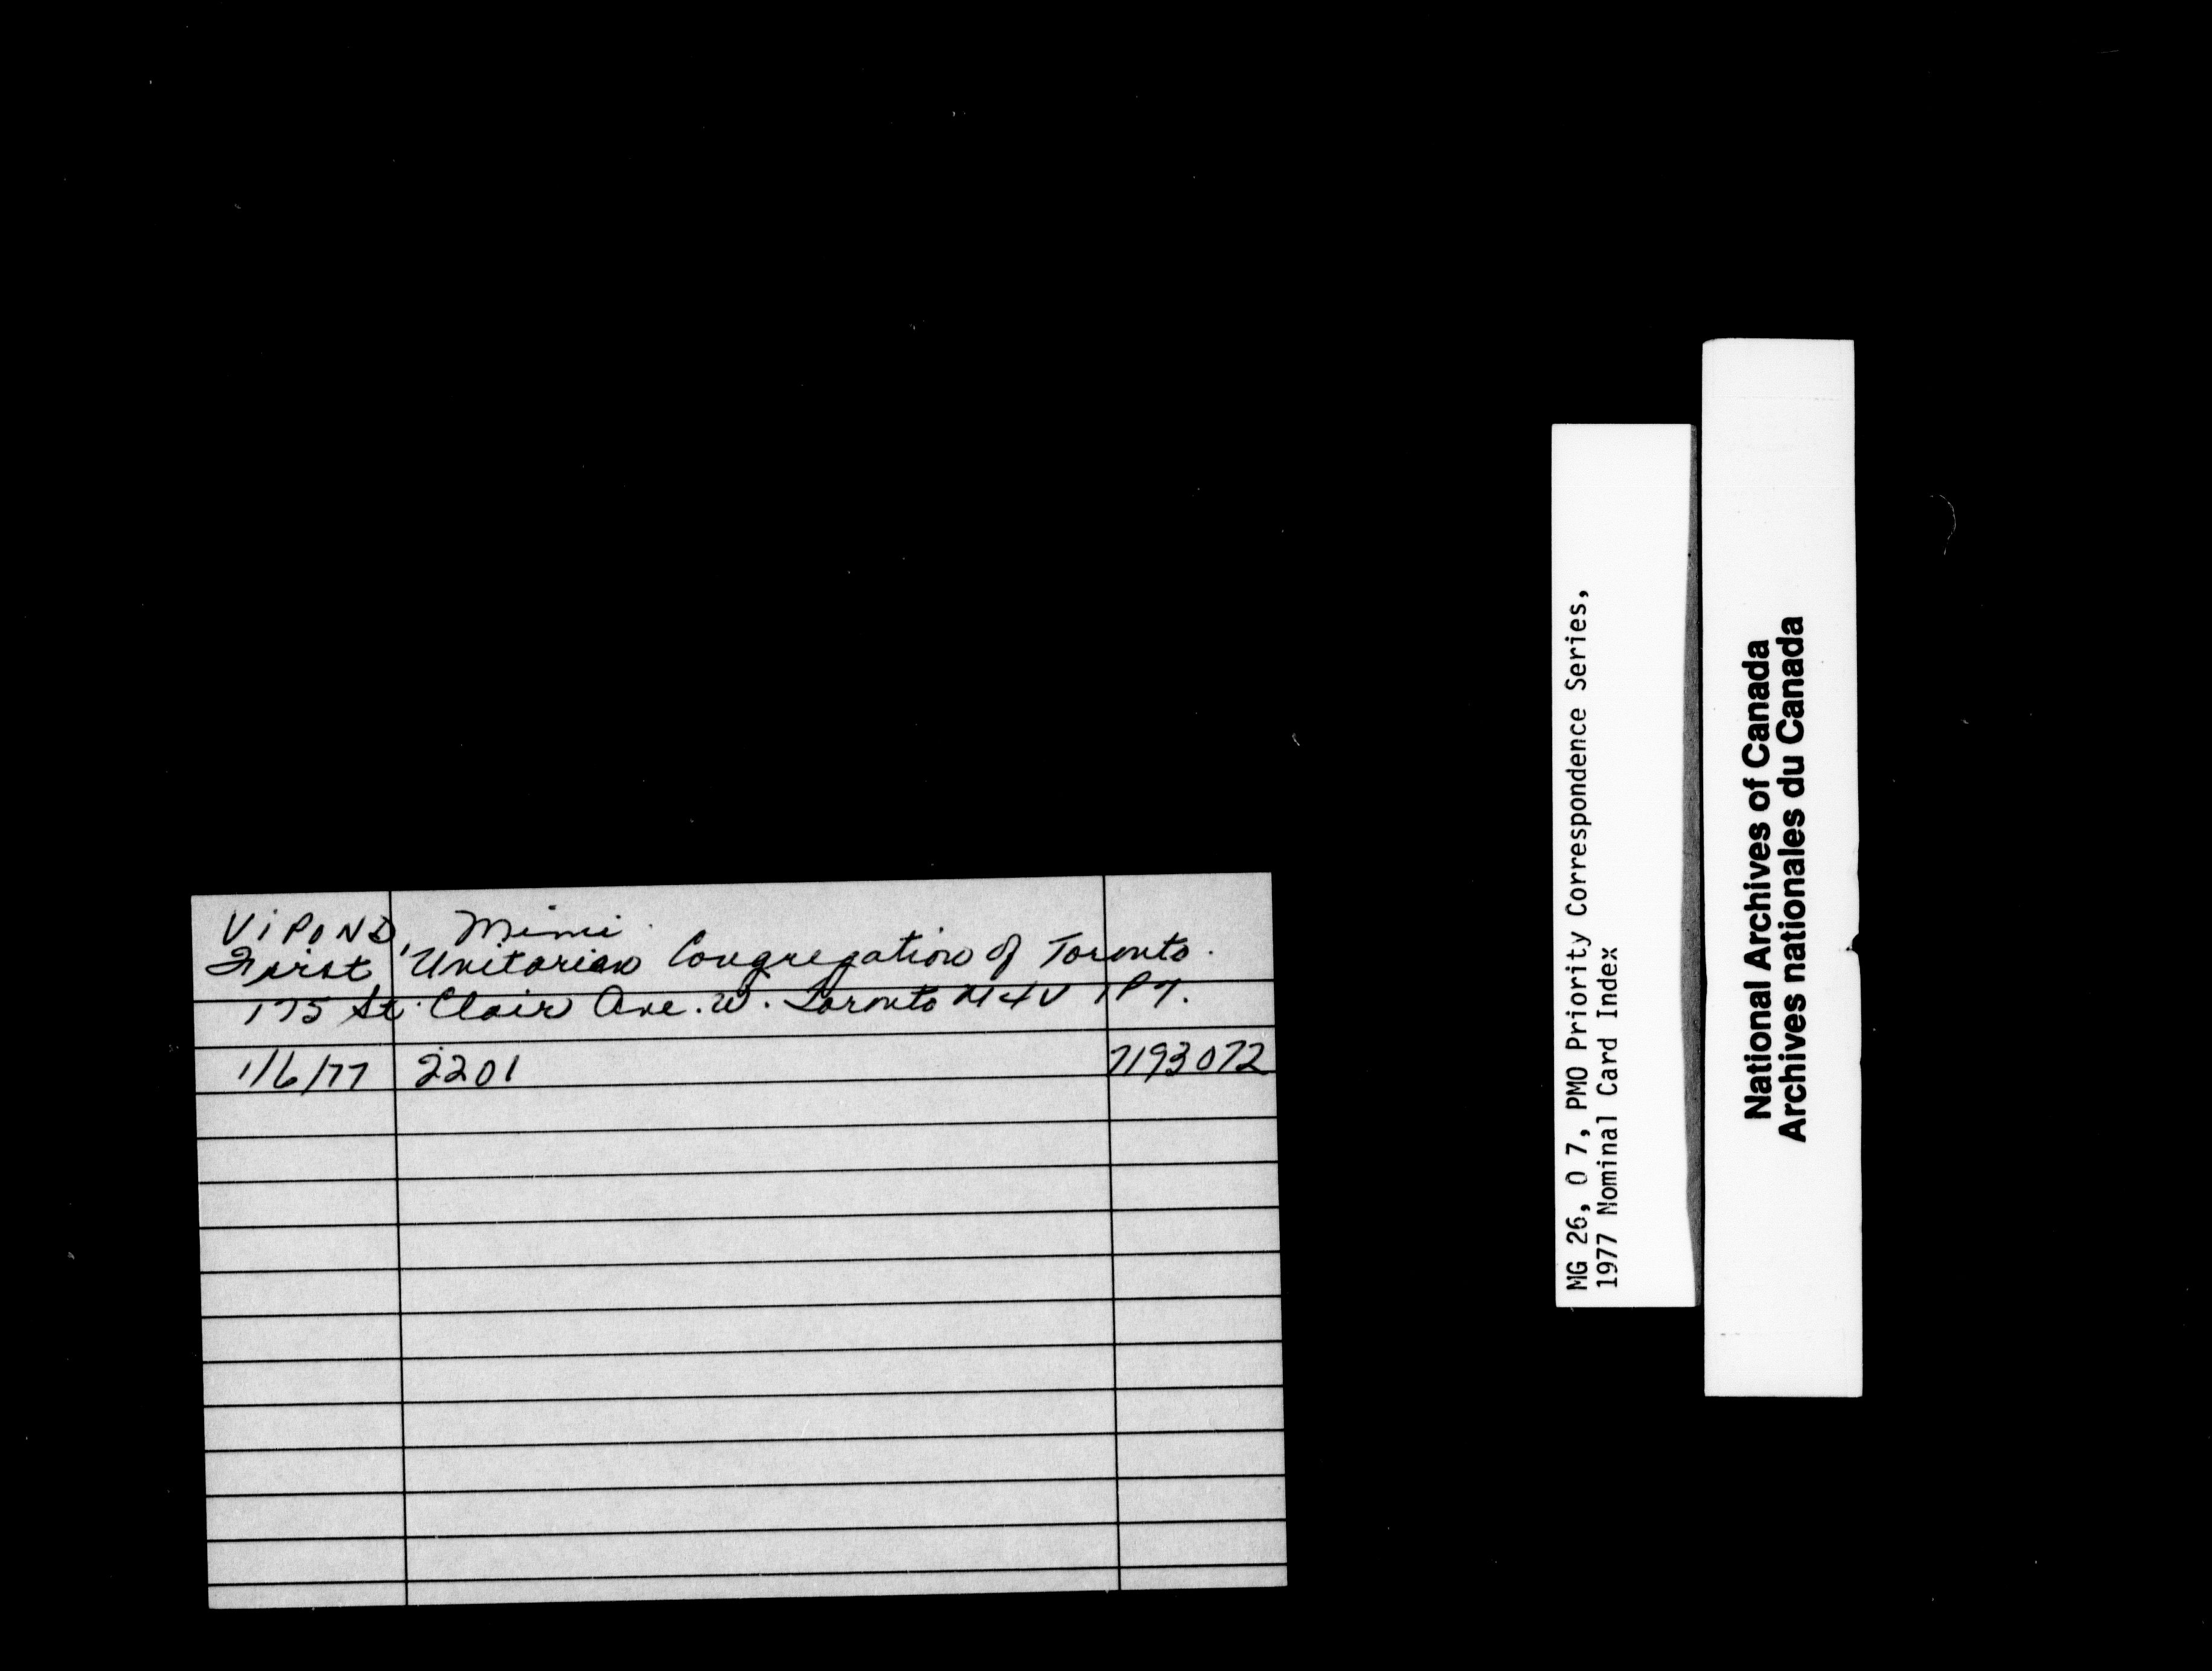 VIPOND, Mimi
First Unitarian Congregation of Toronto.
175 St. Clair Ave. W. Toronto M4V 1P7.
1/6/77 2201 7193072
MG 26, O 7, PMO Priority Correspondence Series,
1977 Nominal Card Index
National Archives of Canada
Archives nationales du Canada